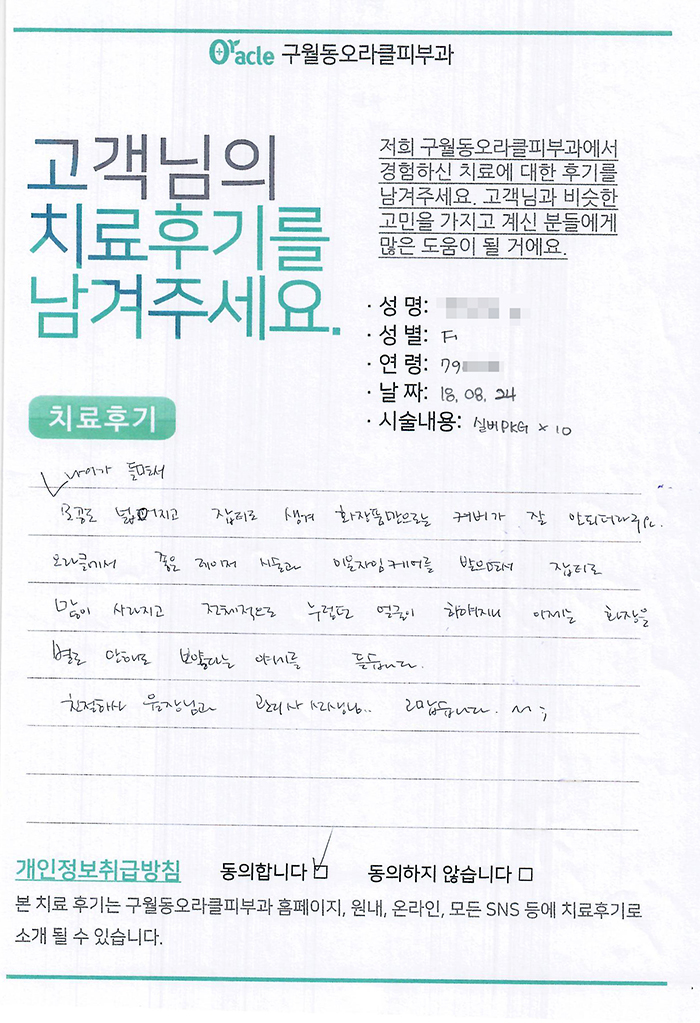 Oracle 구월동오라클피부과
고객님의
치료후기를
남겨주세요.
저희 구월동오라클피부과에서
경험하신 치료에 대한 후기를
남겨주세요. 고객님과 비슷한
고민을 가지고 계신 분들에게
많은 도움이 될 거에요.
· 성 명:
· 성 별: F
· 연 령: 79
· 날 짜: 18. 08. 24
· 시술내용: 실버PKG × 10
치료후기
나이가 들면서
모공도 넓어지고 잡티도 생겨 화장품만으로는 커버가 잘 안되더라구요.
오라클에서 좋은 레이저 시술과 이온자임케어를 받으면서 잡티도
많이 사라지고 전체적으로 누렇던 얼굴이 하얘지니 이제는 화장을
별로 안해도 뽀얗다는 얘기를 듣습니다.
친절하신 원장님과 관리사 선생님.. 고맙습니다. ~;
개인정보취급방침 동의합니다 ☑ 동의하지 않습니다 □
본 치료 후기는 구월동오라클피부과 홈페이지, 원내, 온라인, 모든 SNS 등에 치료후기로
소개 될 수 있습니다.